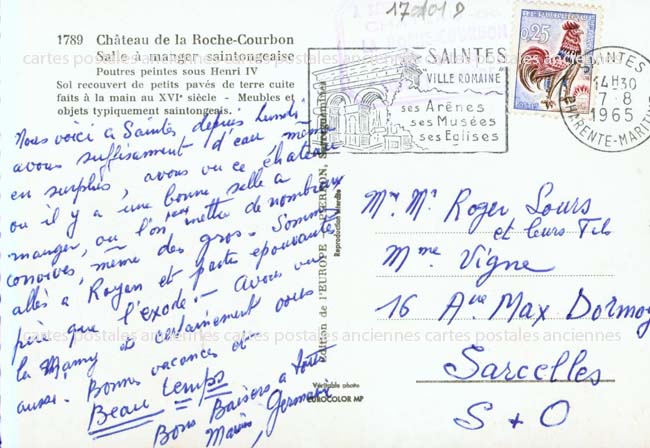 1789 Château de la Roche-Courbon
Salle à manger saintongeaise
Poutres peintes sous Henri IV
Sol recouvert de petits pavés de terre cuite
faits à la main au XVIe siècle - Meubles et
objets typiquement saintongeais.
Nous voici à Saintes depuis lundi
avons suffisamment d'eau même
en surplus, avons vu ce château
ou il y a une bonne selle a
manger, ou l'on mettre de nombreux
convives, même des gros - Sommes
allés a Royan et partis epouvantés
pire que l'exode. - Avons vu
la Mamy et certainement vous
aussi. Bonnes vacances et
Beau temps
Bons Baisers a tous
Germaine
Édition de l'EUROPE
Reproduction interdite
Véritable photo
EUROCOLOR MP
17 0101 D
SAINTES
VILLE ROMAINE
ses Arènes
ses Musées
ses Eglises
0,25
SAINTES
14H30
7-8
1965
CHARENTE-MARITIME
Mr Me Roger Lours
et leurs Fils
Mme Vigne
16 Ave Max Dormoy
Sarcelles
S + O
cartes postales anciennes cartes postales anciennes cartes postales anciennes
cartes postales anciennes cartes postales anciennes cartes postales anciennes